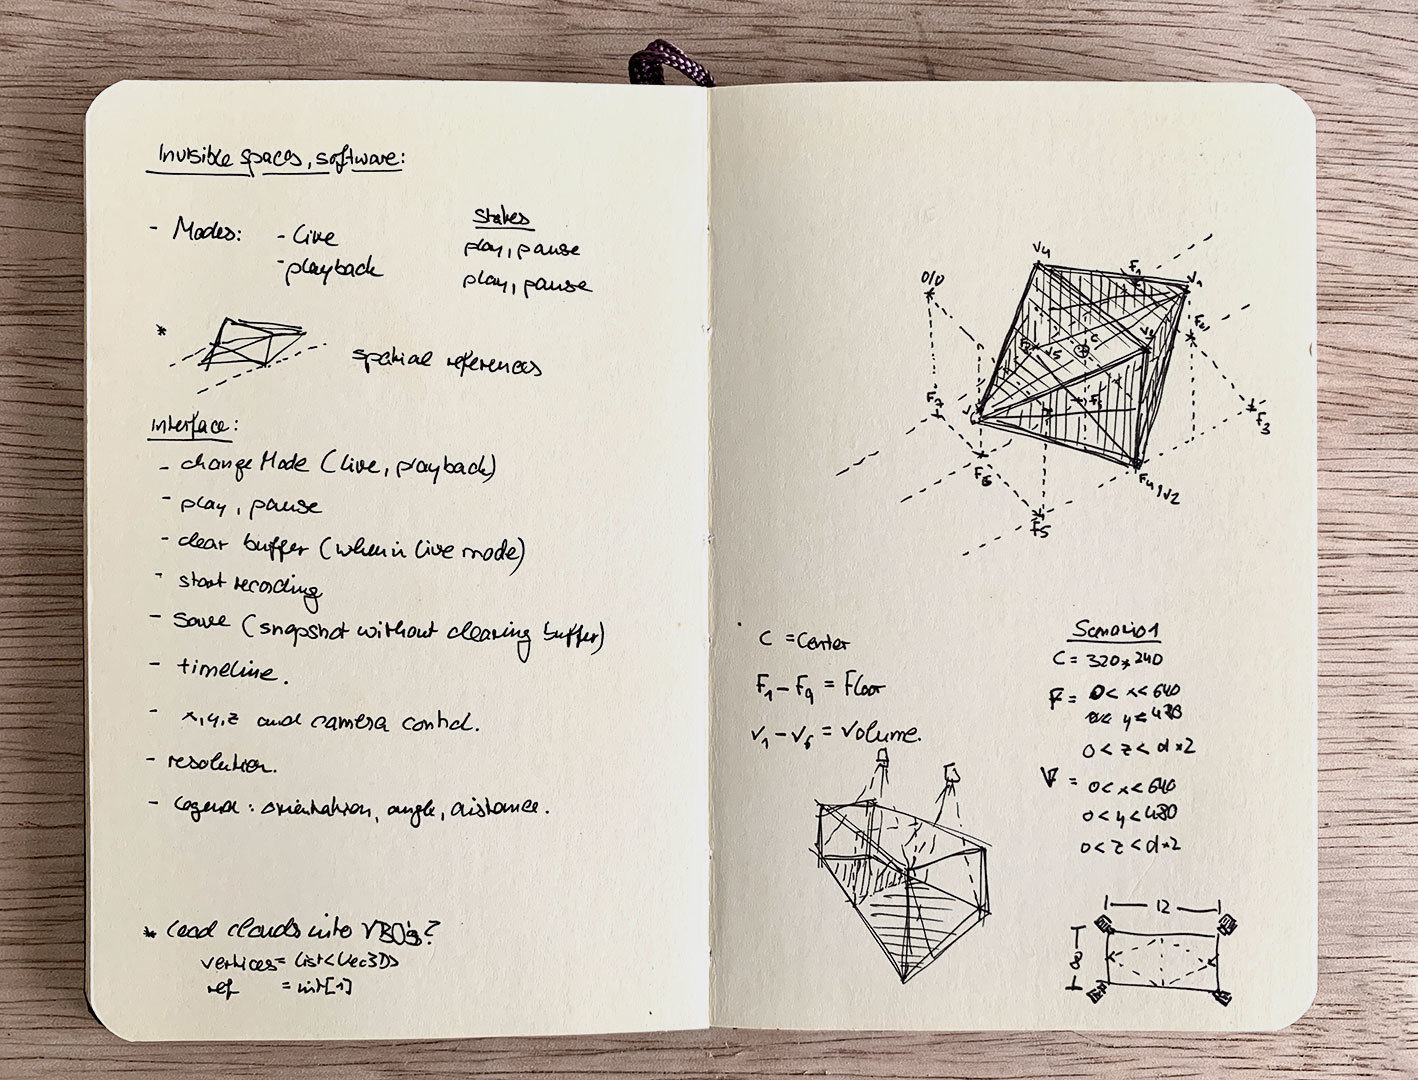 Invisible spaces, software:
- Modes: - Live
- playback
States
play, pause
play, pause
* spatial references
Interface:
- change Mode (live, playback)
- play, pause
- clear buffer (when in live mode)
- start recording
- save (snapshot without clearing buffer)
- timeline.
- x,y,z and camera control.
- resolution.
- legend: orientation, angle, distance.
* Load clouds into VBO's?
vertices = List<Vec3D>
ref = int[1]
V4
F1
V1
0/0
F2
C
V5
F7
F3
F6
F4, V2
F5
C = Center
F1 - F9 = Floor
V1 - V6 = Volume.
Scenario 1
C = 320x240
F = 0 < x < 640
0 < y < 480
0 < z < d*2
V = 0 < x < 640
0 < y < 480
0 < z < d*2
12
8